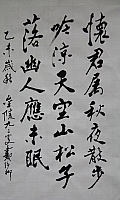 懷君屬秋夜散步
吟涼天空山松子
落幽人應未眠
乙未歲秋